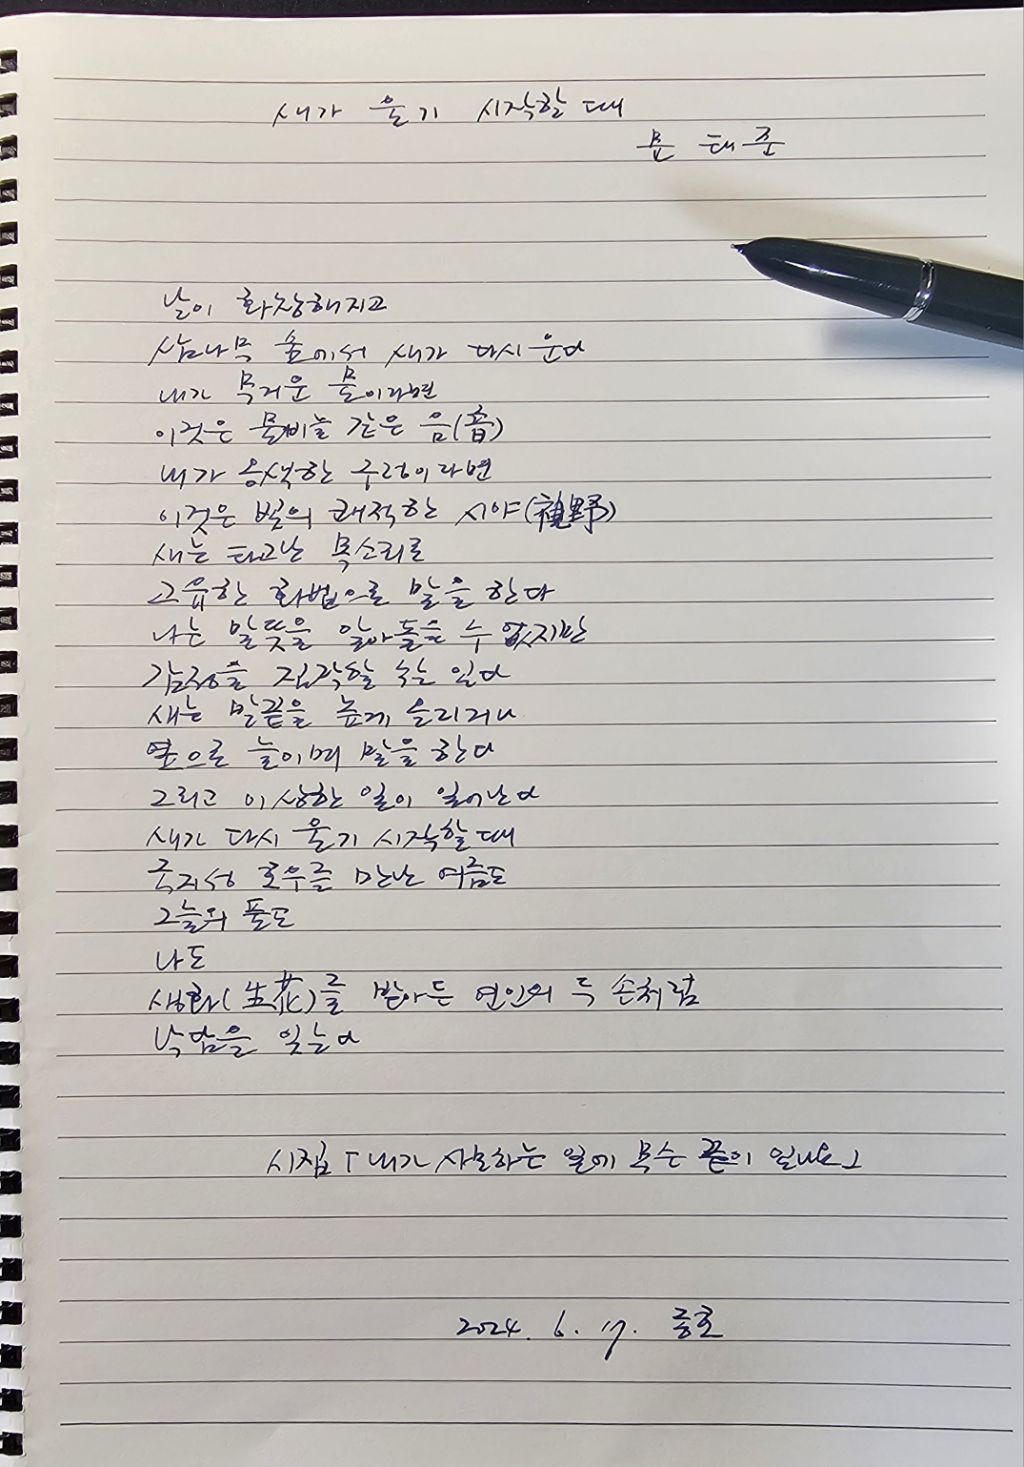 새가 울기 시작할 때
문 태준
날이 화창해지고
삼나무 숲에서 새가 다시 운다
내가 무거운 물이라면
이것은 물비늘 같은 음(音)
내가 응색한 구렁이라면
이것은 빛의 쾌적한 시야(視野)
새는 타고난 목소리로
고유한 화법으로 말을 한다
나는 말뜻을 알아들을 수 없지만
감정을 짐작할 수는 있다
새는 말끝을 높게 올리거나
옆으로 늘이며 말을 한다
그리고 이상한 일이 일어난다
새가 다시 울기 시작할 때
국지성 호우를 만난 여름도
그늘의 풀도
나도
생화(生花)를 받아든 연인의 두 손처럼
낙담을 잊는다
시집 「내가 사모하는 일에 무슨 끝이 있나요」
2024. 6. 17.